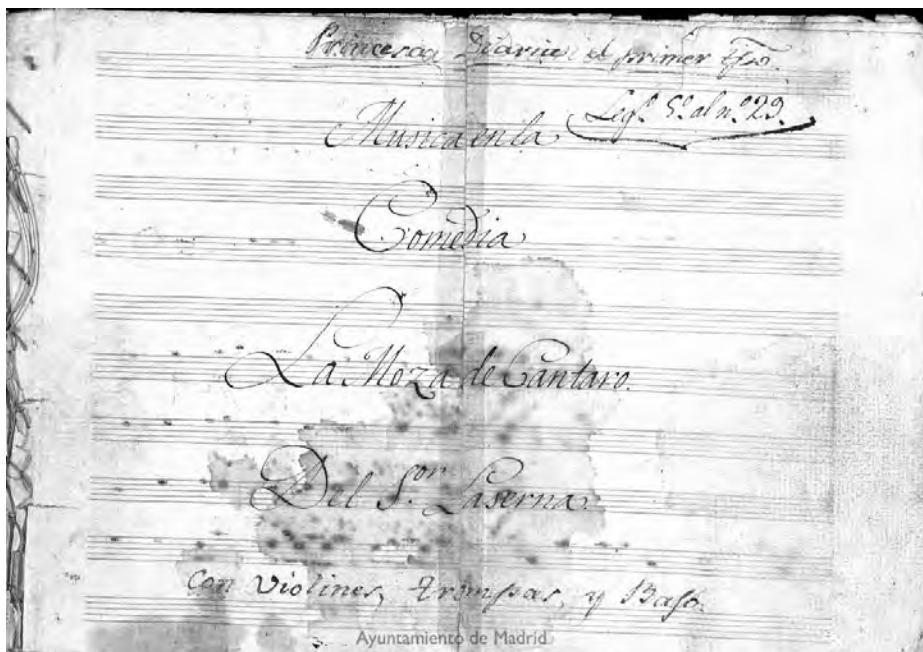 Princesa, Diario, el primer
Legº. 5º. al nº. 29.
Musica en la
Comedia
La Moza de Cantaro.
Del S.or Laserna
Con Violines, trompas, y Bajo.
Ayuntamiento de Madrid